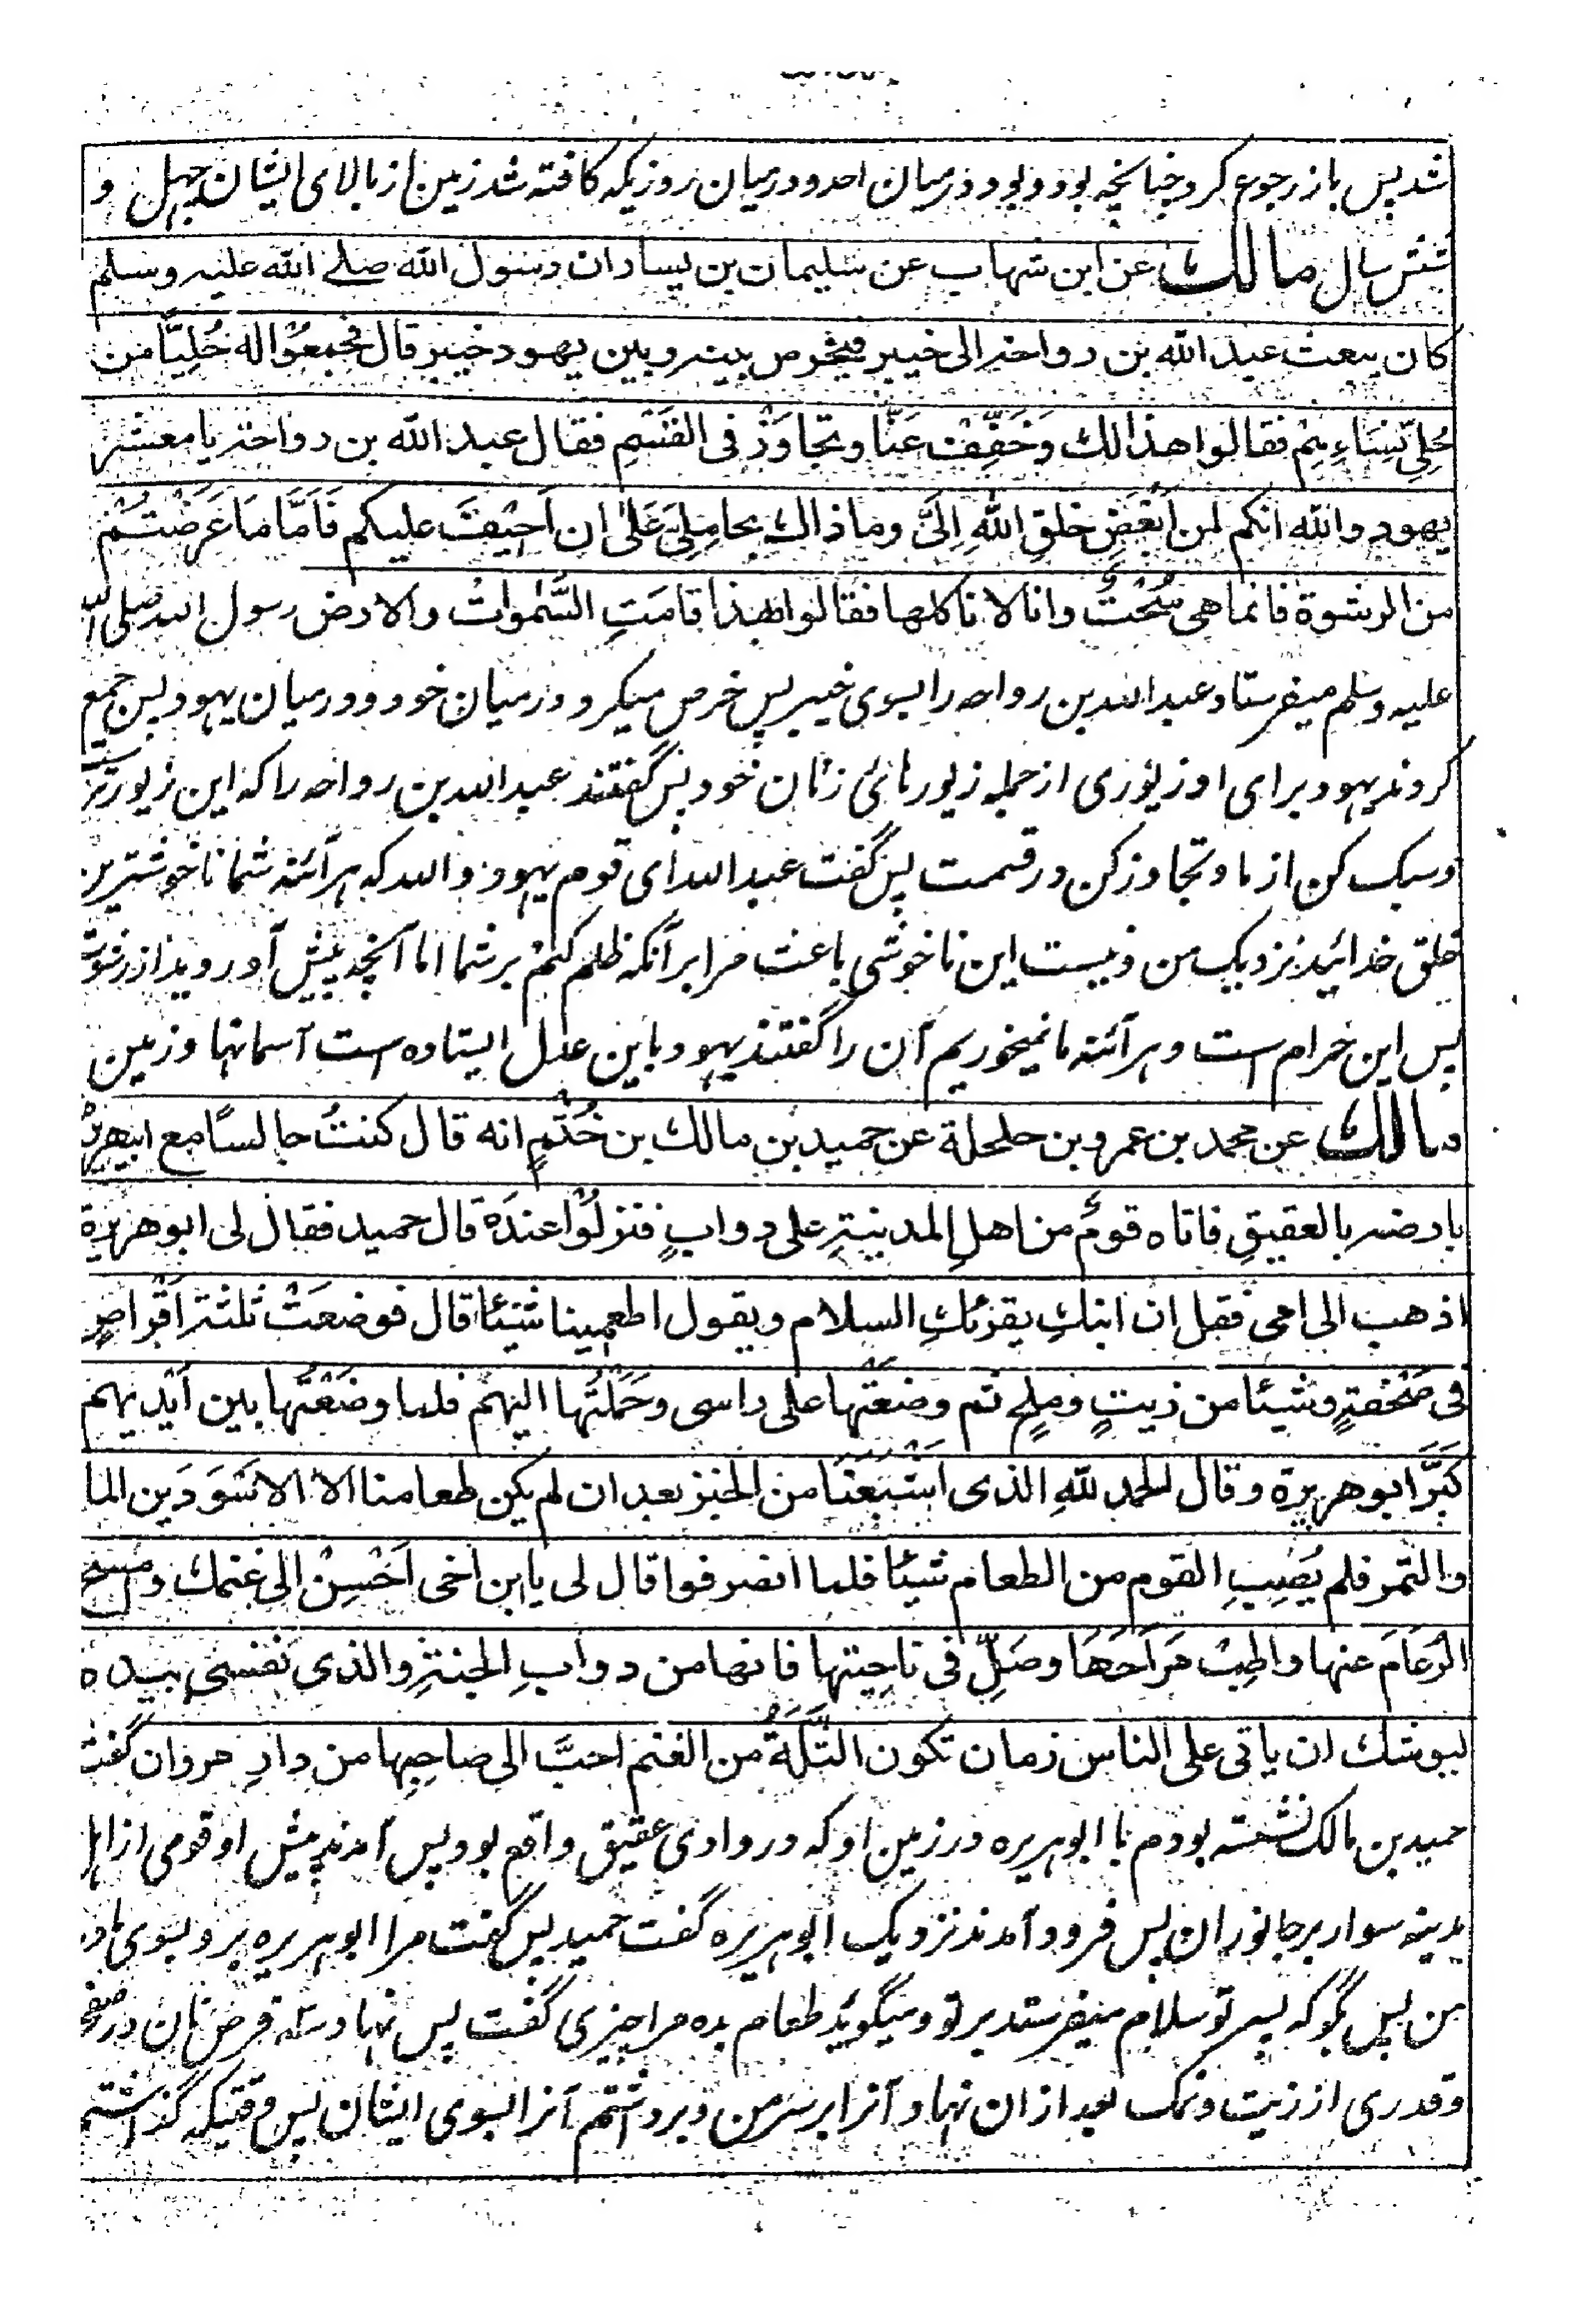 شد پس باز رجوع کرد چنانچه بود و بود در میان احد و درمیان روزیکه کافته شد زمین از بالای ایشان چهل و
شش سال مالك عن ابن شهاب عن سليمان بن يسار ان رسول الله صلے الله عليه وسلم
كان يبعث عبد الله بن رواحة الى خيبر فيخرص بينه وبين يهود خيبر قال فجمعُوْا له حُلِيًّا من
حُلِيّ نِسَاءِهِمْ فقالوا هذا لك وَخَفِّفْ عَنَّا وتجاوَزْ فى القَسْمِ فقال عبد الله بن رواحة يا معشر
يهود والله انكم لمن اَبْغَضِ خلقِ اللهِ اِلَىَّ وما ذاك بحامِلِىْ عَلٰى ان اَحِيْفَ عليكم فَاَمَّا مَا عَرَضْتُمْ
من الرشوة فانما هى سُحْتٌ وانا لا ناكلها فقالوا بهذا قامَتِ السَّمٰوٰتُ والارض رسول الله صلی الله
علیه وسلم میفرستاد عبد الله بن رواحه را بسوی خیبر پس خرص میکرد درمیان خود و درمیان یهود پس جمع
کردند یهود برای او زیوری از جمله زیورهای زنان خود پس گفتند عبد الله بن رواحه را که این زیور تست
و سبک کن از ما و تجاوز کن در قسمت پس گفت عبد الله ای قوم یهود والله که هر آئنه شما ناخوشترین
خلق خدائید نزدیک من و نیست این ناخوشی باعث مرا بر آنکه ظلم کنم بر شما اما آنچه پیش آوردید از رشوت
پس این حرام ست و هر آئنه ما نمیخوریم آن را گفتند یهود باین عدل ایستاده ست آسمانها و زمین
مالك عن محمد بن عمرو بن حلحلة عن حميد بن مالك بن خُثَمٍ انه قال كنتُ جالسًا مع ابيهريرة
بارضه بالعقيقِ فاتاه قومٌ من اهلِ المدينةِ على دوابٍ فنزلُوْا عندَهٗ قال حميد فقال لى ابو هريرة
اذهب الى امى فقل ان ابنكِ يقرئكِ السلام ويقول اطعمينا شيئا قال فوضعَتْ ثلثة اَقْراصٍ
فى صَحْفةٍ وشيئا من زيتٍ وملحٍ ثم وضعَتْها على راسى وحَمَلْتُها اليهم فلما وضَعْتُها بين اَيْديهم
كَبَّرَ ابو هريرة وقال الحمد للهِ الذى اَشْبَعَنَا من الخبز بعد ان لم يكن طعامنا الا الاَسْوَدَين الما
والتمر فلم يُصِبِ القوم من الطعام شيئا فلما انصرفوا قال لى يا ابن اخى اَحْسِنْ الى غنمك وامسح
الرُعَامَ عنها واطِبْ مَرَاحَهَا وصَلِّ فى ناحِيتها فانها من دوابِ الجنةِ والذى نَفْسى بيده
ليوشك ان ياتى على الناس زمان تكون الثَّلَّةُ من الغنم احبَّ الى صاحِبِها من دارِ مروان گفت
حمید بن مالک نشسته بودم با ابوهریره در زمین او که در وادی عقیق واقع بود پس آمدند پیش او قومی از اهل
مدینه سوار بر جانوران پس فرود آمدند نزدیک ابوهریره گفت حمید پس گفت مرا ابوهریره برو بسوی مادر
من پس بگو که پسر تو سلام میفرستد بر تو و میگوید طعام بده مرا چیزی گفت پس نهاد سه قرص نان در صفحه
و قدری از زیت و نمک بعد از ان نهاد آنرا بر سر من و برداشتم آنرا بسوی ایشان پس وقتیکه گذاشتم